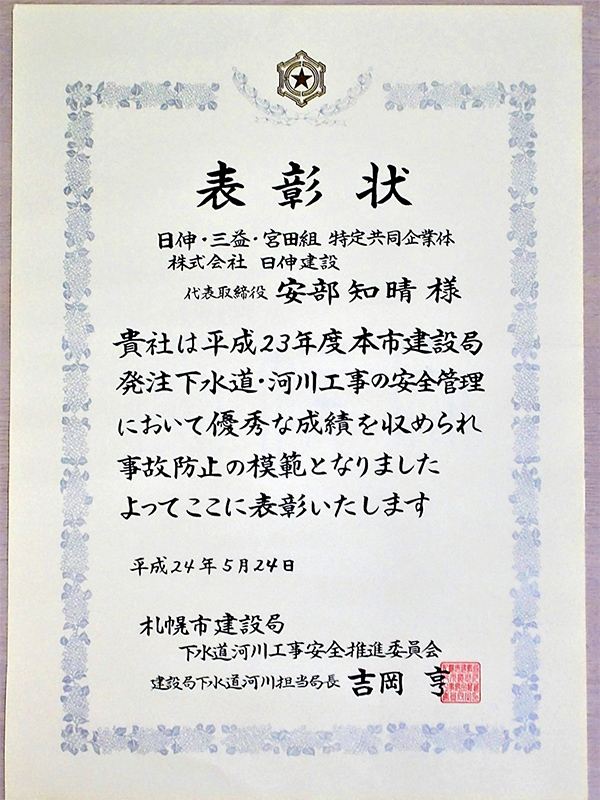 表彰状
日伸・三益・宮田組 特定共同企業体
株式会社 日伸建設
代表取締役 安部知晴様
貴社は平成23年度本市建設局
発注下水道・河川工事の安全管理
において優秀な成績を収められ
事故防止の模範となりました
よってここに表彰いたします
平成24年5月24日
札幌市建設局
下水道河川工事安全推進委員会
建設局下水道河川担当局長 吉岡 亨